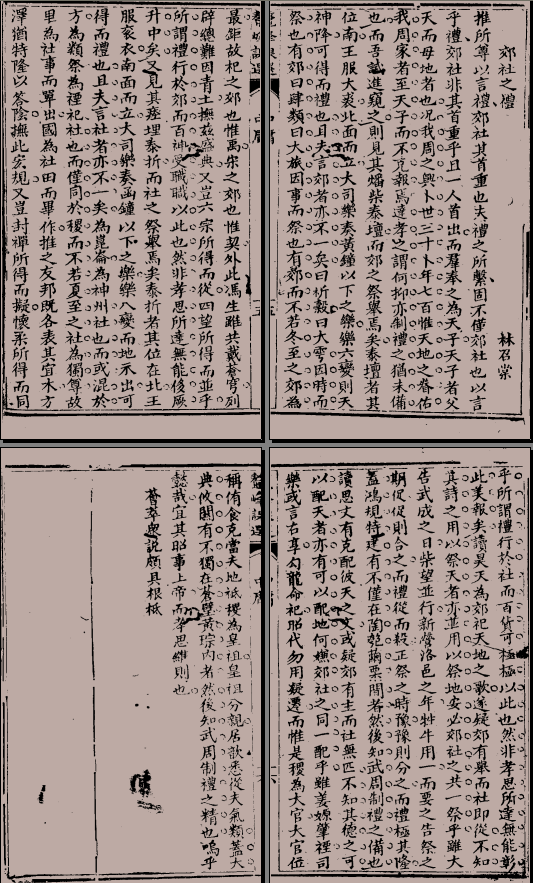 郊社之禮
林召棠
推所尊以言禮郊社其首重也夫禮之所繫固不僅郊社也以言
乎禮郊社非其首重乎且一人首出而羣奉之為天子天子者父
天而母地者也況我周之興卜世三十卜年七百惟天地之眷佑
我周家者至天子而不克報焉達孝之謂何抑亦制禮之猶未備
也而吾誠進窺之則見其燔柴泰壇而郊之祭舉焉矣泰壇者其
位南王服大裘北面而立大司樂奏黃鐘以下之樂樂六變則天
神降可得而禮也且夫言郊者亦不一矣曰祈穀曰大雩因時而
祭也有郊曰肆類曰大旅因事而祭也有郊而不若冬至之郊為
最鉅故祀之郊也惟禹宋之郊也惟契外此馮生雖共戴蒼穹列
辟總難因青土撫茲盛典又豈六宗所得而從四望所得而並乎
所謂禮行於郊而百神受職職以此也然非孝思所達無能後厥
升中矣又見其瘞埋泰折而社之祭舉焉矣泰折者其位在北王
服袞衣南面而立大司樂奏函鐘以下之樂樂八變而地示出可
得而禮也且夫言社者亦不一矣為崑崙為神州社也而或混於
方為類祭為禋祀社也而僅同於稷而不若夏至之社為獨尊故
里為社事而單出國為社田而畢作推之友邦既各表其宜木方
澤猶特隆以答陰撫此宏規又豈封禪所得而擬懷柔所得而同
乎所謂禮行於社而百貨可極極以此也然非孝思所達無能彰
此美報矣讀昊天為郊祀天地之歌遂疑郊有舉而社即從不知
其詩之用以祭天者亦並用以祭地安必郊社之共一祭乎雖大
告武成之日柴望並行新營洛邑之年牲牛用一而要之告祭之
期促促則合之而禮從而殺正祭之時豫豫則分之而禮極其隆
蓋鴻規特建有不僅在陶匏繭栗間者然後知武周制禮之備也
讀思文有克配彼天之文或疑郊有主而社無匹不知其德之可
以配天者亦有可以配地何嫌郊社之同一配乎雖姜嫄肇禋司
樂或言右享勾龍命祀昭代勿用擬遷而惟是稷為大官大官位
稱侑食克當夫地祗稷為皇祖皇祖分親居歆悉從夫氣類蓋大
典攸關有不獨在蒼璧黃琮內者然後知武周制禮之精也嗚乎
懿哉宜其昭事上帝而孝思維則也
薈萃眾說頗具根柢